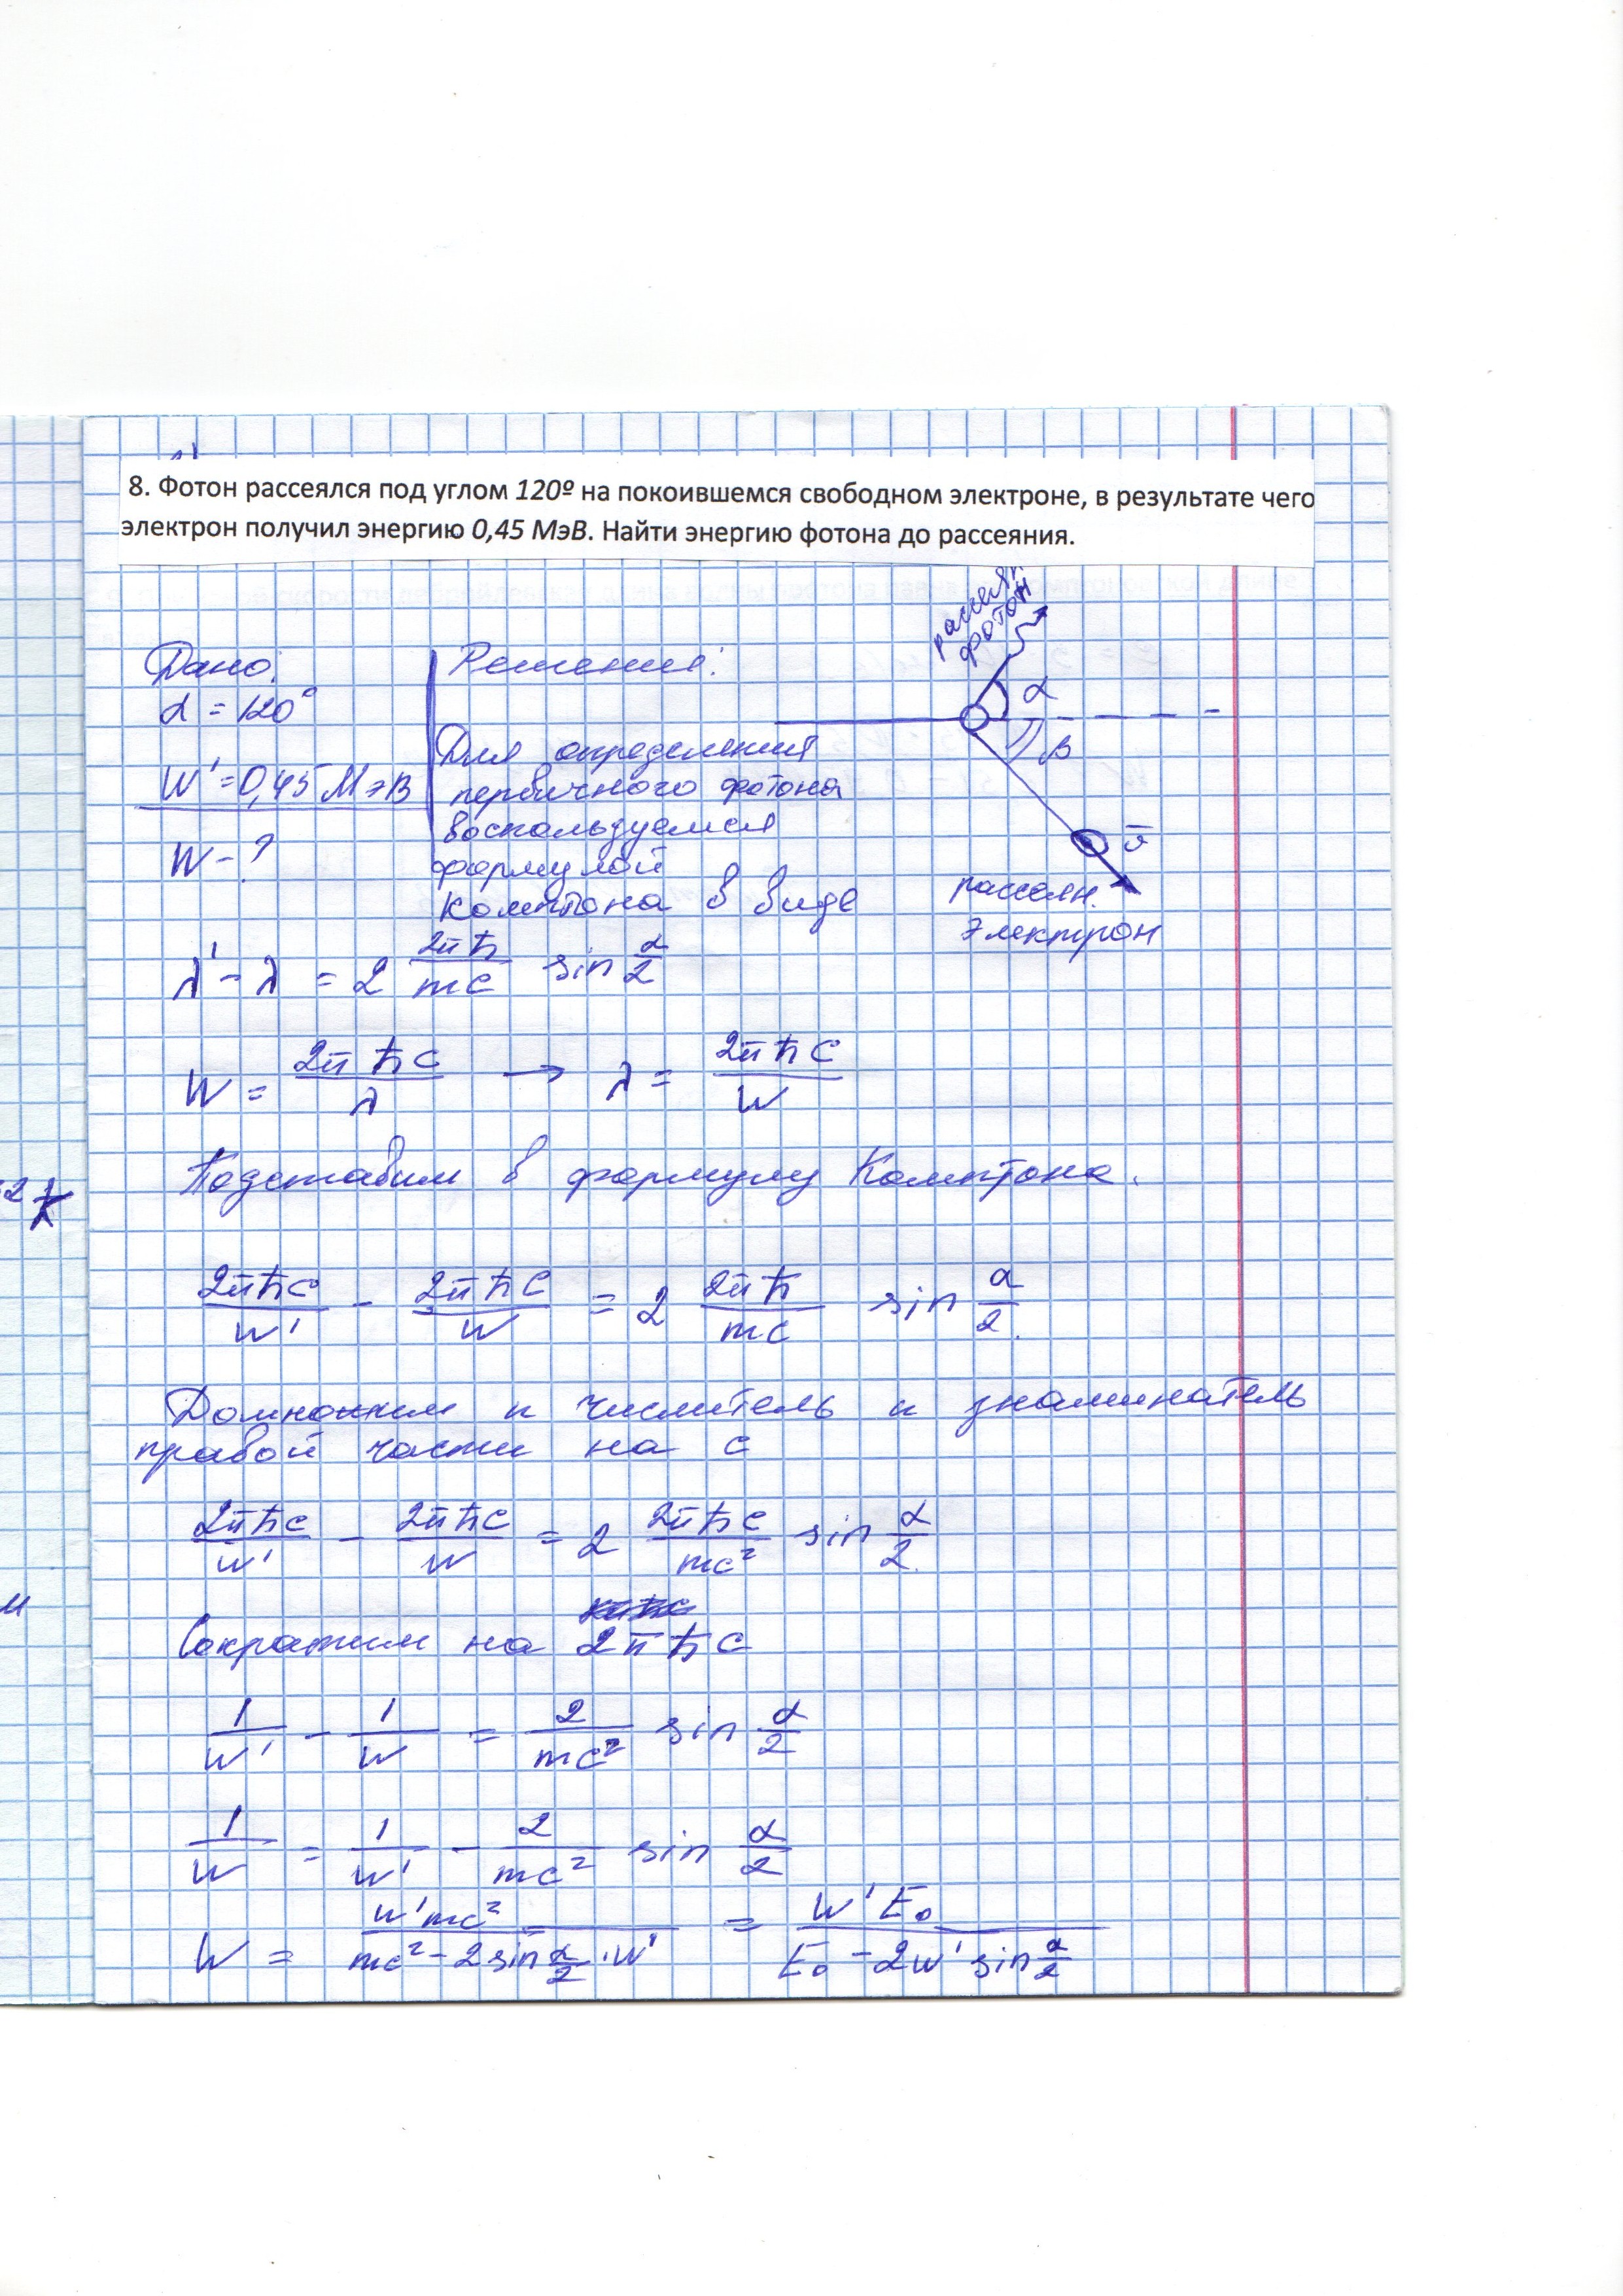 8. Фотон рассеялся под углом 120º на покоившемся свободном электроне, в результате чего
электрон получил энергию 0,45 МэВ. Найти энергию фотона до рассеяния.
рассеян.
фотон
Дано:
Решение:
α = 120°
α
β
W' = 0,45 МэВ
W - ?
Для определения
первичного фотона
воспользуемся
формулой
Комптона в виде
v̄
рассеян.
электрон
λ' - λ = 2 2πħ/mc sin α/2
W = 2πħc/λ → λ = 2πħc/W
Подставим в формулу Комптона.
2πħc/W' - 2πħc/W = 2 2πħ/mc sin α/2.
Домножим и числитель и знаминатель
правой части на c
2πħc/W' - 2πħc/W = 2 2πħc/mc² sin α/2.
Сократим на 2πħc
1/W' - 1/W = 2/mc² sin α/2
1/W = 1/W' - 2/mc² sin α/2
W = W'mc²/(mc² - 2 sin α/2 · W') = W'E₀/(E₀ - 2W' sin α/2)